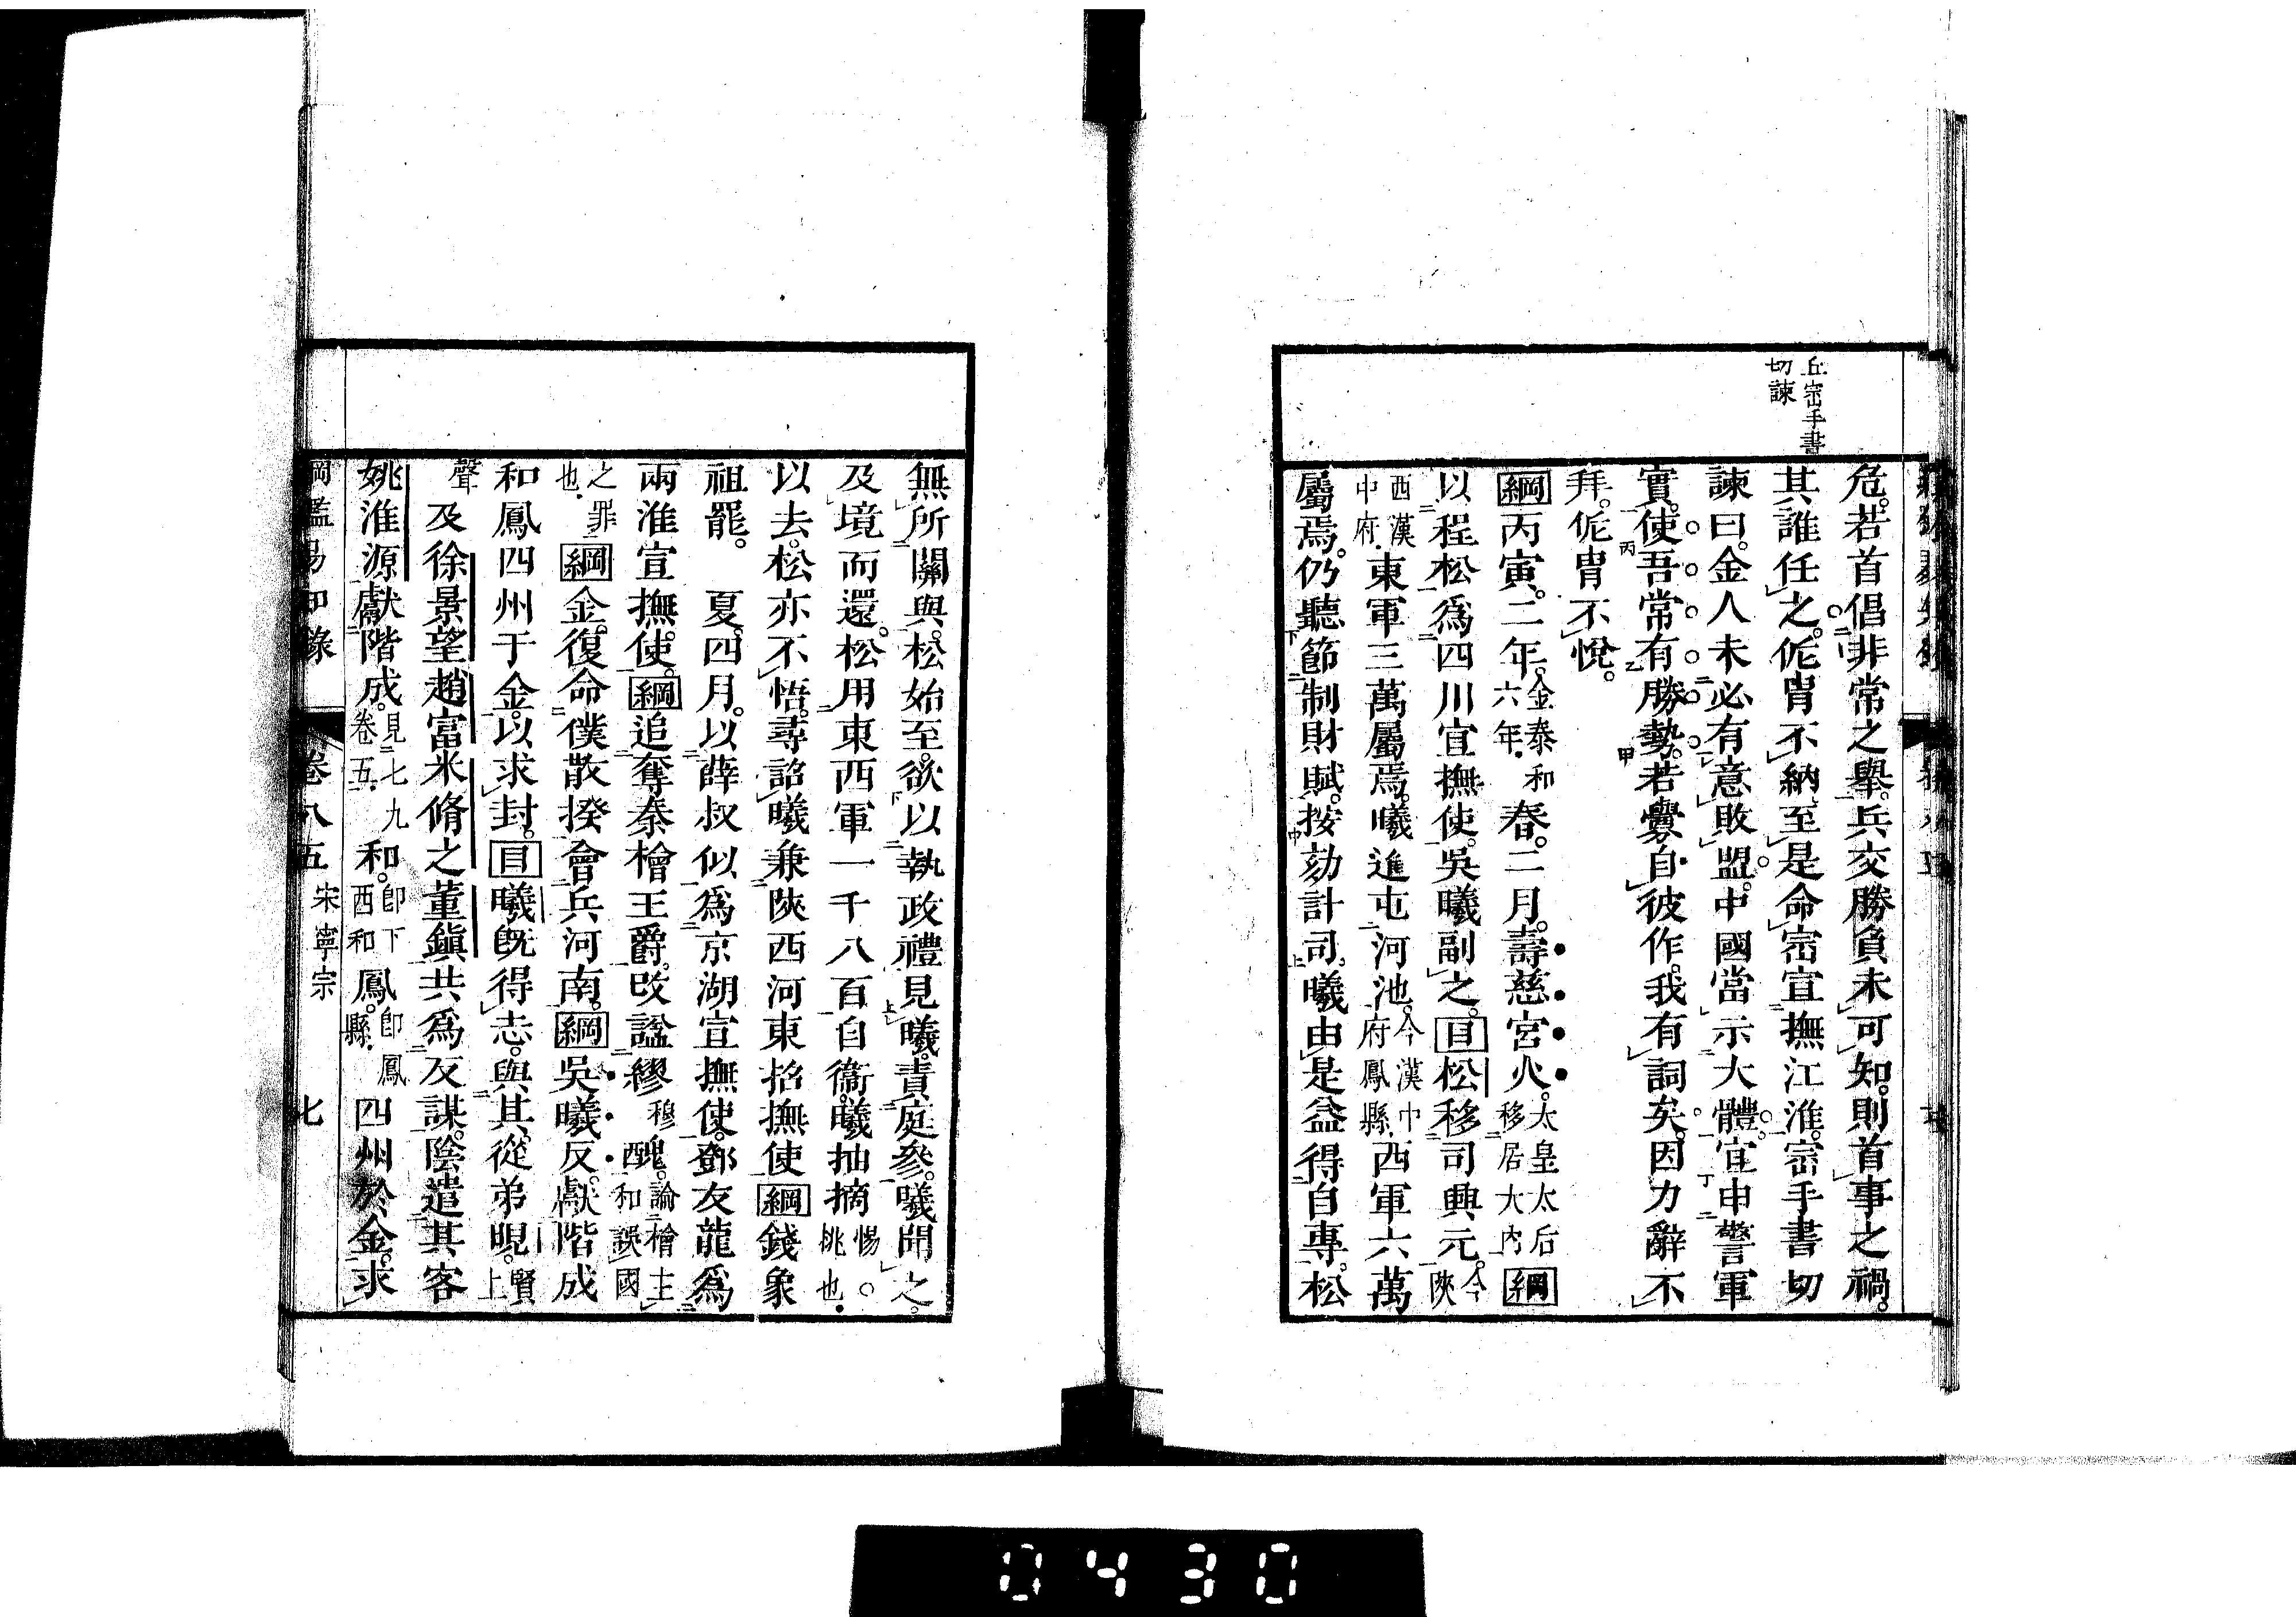 丘崈手書
切諫
危。若首倡非常之舉。兵交勝負未可知。則首事之禍。
其誰任之。侂胄不納。至是命崈宣撫江淮。崈手書切
諫曰。金人未必有意敗盟。中國當示大體。宜申警軍
實。使吾常有勝勢。若釁自彼作。我有詞矣。因力辭不
拜。侂胄不悅。
綱丙寅。二年。金泰和六年。春。二月。壽慈宮火。太皇太后移居大內綱
以程松爲四川宣撫使。吳曦副之。目松移司興元。今陝
西漢中府。東軍三萬屬焉。曦進屯河池。今漢中府鳳縣。西軍六萬
屬焉。仍聽節制財賦。按劾計司。曦由是益得自專。松
無所關與。松始至。欲以執政禮見曦。責庭參。曦聞之。
及境而還。松用東西軍一千八百自衞。曦抽摘惕。○挑也。
以去。松亦不悟。尋詔曦兼陝西河東招撫使綱錢象
祖罷。 夏。四月。以薛叔似爲京湖宣撫使。鄧友龍爲
兩淮宣撫使。綱追奪秦檜王爵。改諡繆醜。穆論檜主和誤國
之罪也。綱金。復命僕散揆會兵河南。綱吳曦反。獻階成
和鳳四州于金。以求封。目曦旣得志。與其從弟晛。賢上
聲及徐景望趙富米脩之董鎭共爲友謀。陰遣其客
姚淮源獻階成。見七九卷五。和。卽下西和鳳。卽鳳縣。四州於金。求
綱鑑易知錄 卷八五 宋寧宗 七
0430